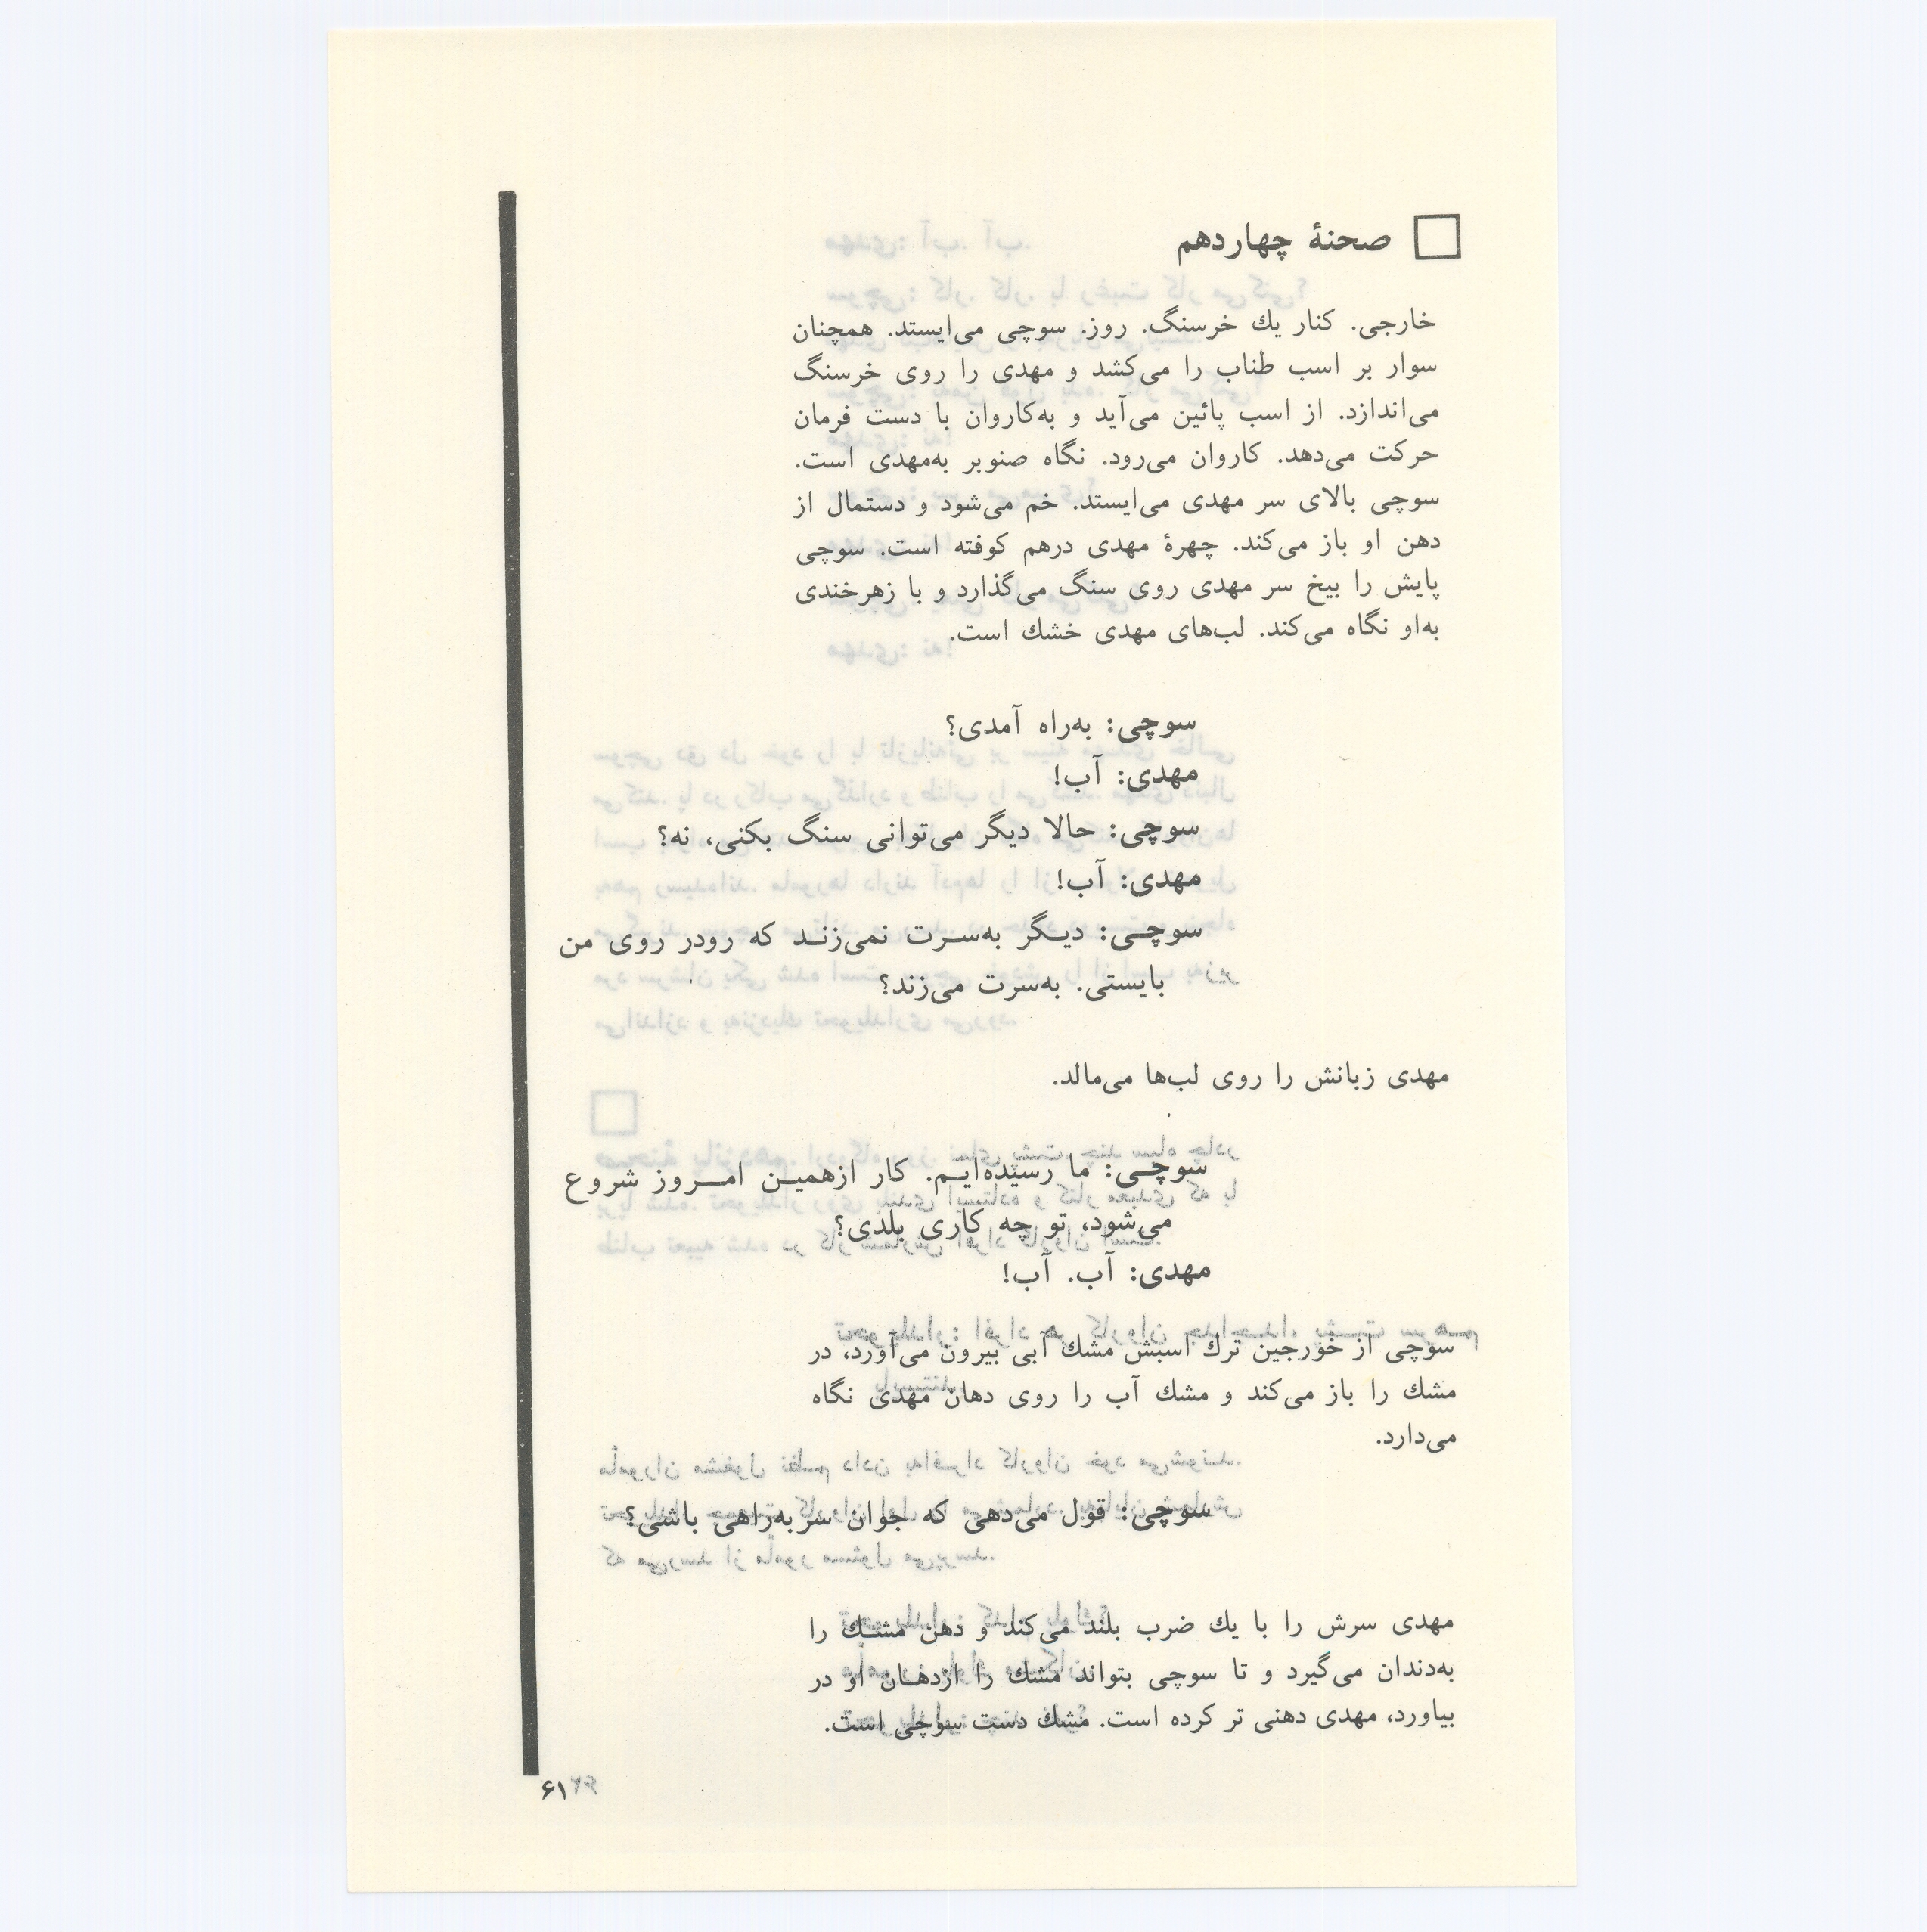 صحنهٔ چهاردهم
خارجی. کنار یك خرسنگ. روز. سوچی می‌ایستد. همچنان
سوار بر اسب طناب را می‌کشد و مهدی را روی خرسنگ
می‌اندازد. از اسب پائین می‌آید و به‌کاروان با دست فرمان
حرکت می‌دهد. کاروان می‌رود. نگاه صنوبر به‌مهدی است.
سوچی بالای سر مهدی می‌ایستد. خم می‌شود و دستمال از
دهن او باز می‌کند. چهرهٔ مهدی درهم کوفته است. سوچی
پایش را بیخ سر مهدی روی سنگ می‌گذارد و با زهرخندی
به‌او نگاه می‌کند. لب‌های مهدی خشك است.
سوچی: به‌راه آمدی؟
مهدی: آب!
سوچی: حالا دیگر می‌توانی سنگ بکنی، نه؟
مهدی: آب!
سوچـی: دیـگر به‌سـرت نمی‌زنـد که رودر روی من
بایستی. به‌سرت می‌زند؟
مهدی زبانش را روی لب‌ها می‌مالد.
سوچـی: ما رسیده‌ایـم. کار ازهمیـن امـروز شروع
می‌شود، تو چه کاری بلدی؟
مهدی: آب. آب!
سوچی از خورجین ترك اسبش مشك آبی بیرون می‌آورد، در
مشك را باز می‌کند و مشك آب را روی دهان مهدی نگاه
می‌دارد.
سوچی: قول می‌دهی که جوان سربه‌راهی باشی؟
مهدی سرش را با یك ضرب بلند می‌کند و دهن مشـك را
به‌دندان می‌گیرد و تا سوچی بتواند مشك را ازدهـان او در
بیاورد، مهدی دهنی تر کرده است. مشك دست سوچی است.
۶۱